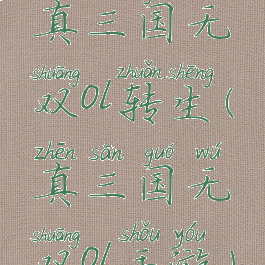 真三国无
shuāng zhuǎn shēng
双01转生(
zhēn sān guó wú
真三国无
shuāng shǒu yóu
双01手游)